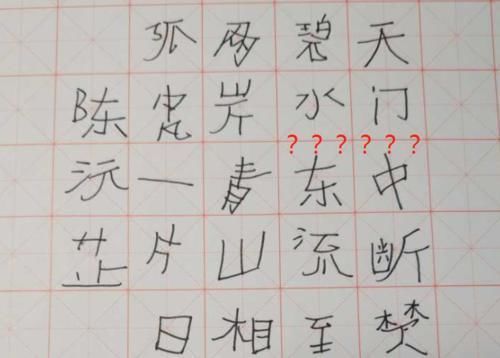 天门中断楚
碧水东流至
两岸青山相
孤帆一片日
陈沅芷
??????